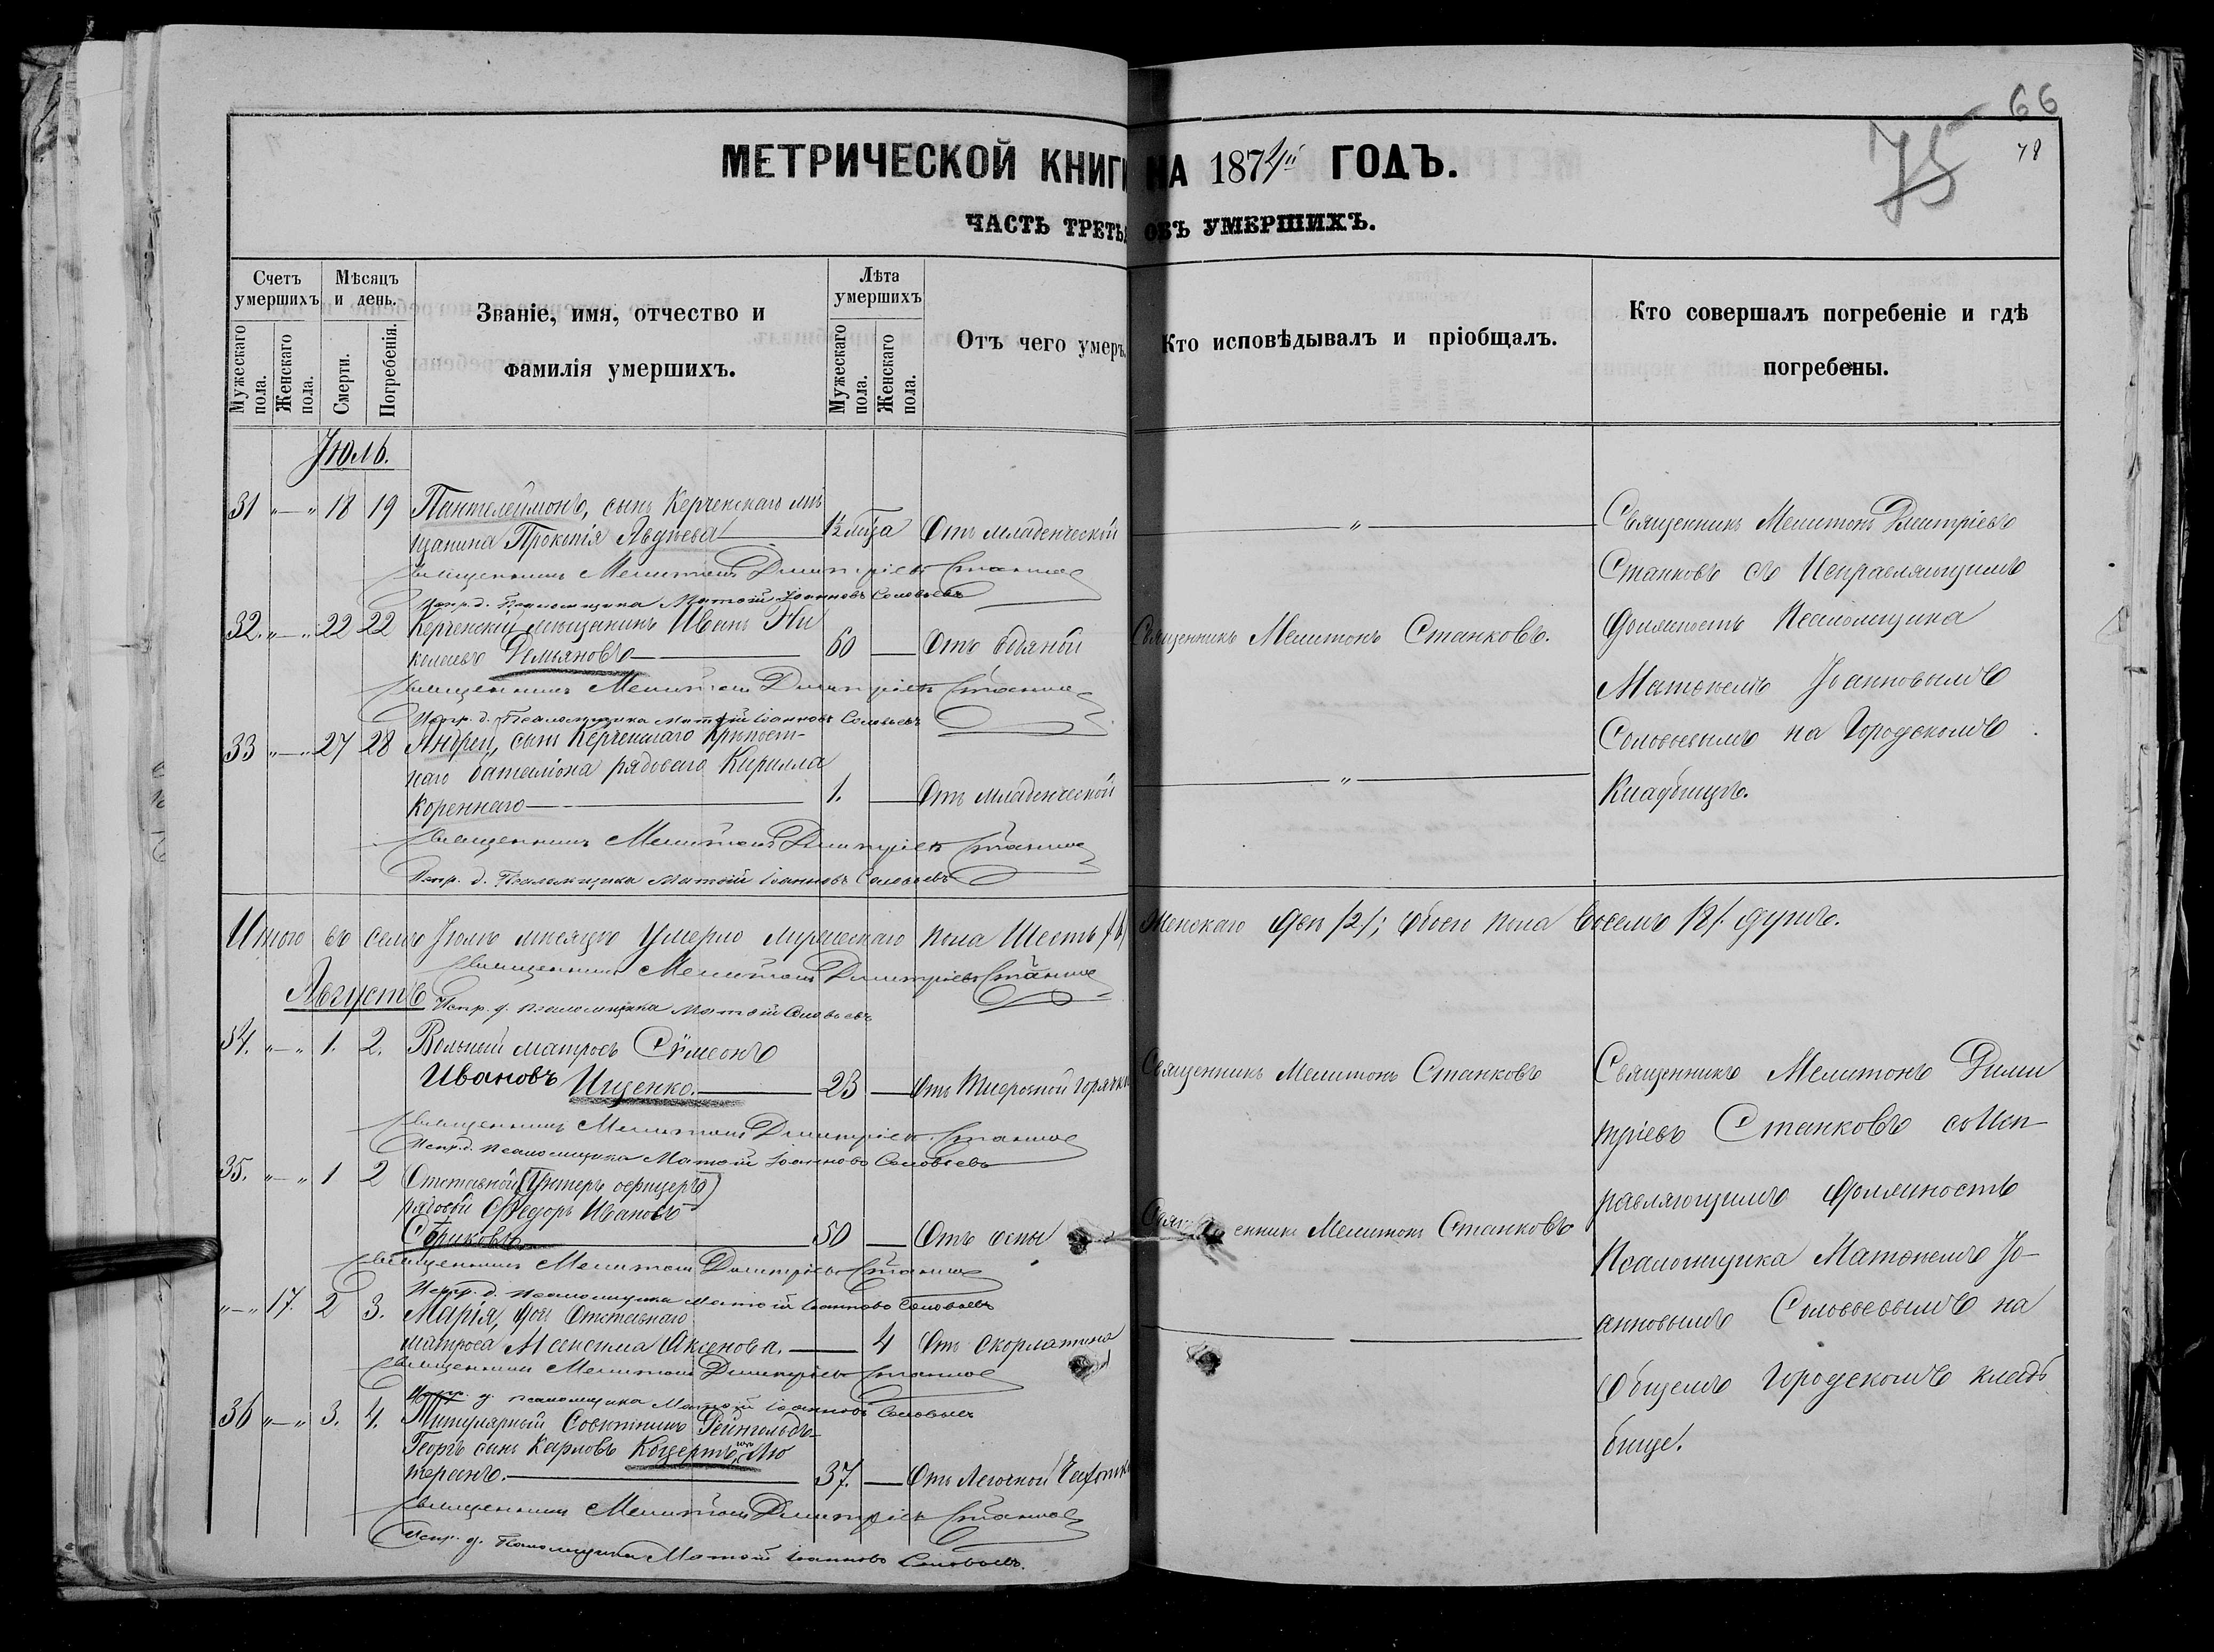 66
75
78
МЕТРИЧЕСКОЙ КНИГИ НА 1874й ГОДЪ.
ЧАСТЬ ТРЕТЬЯ ОБЪ УМЕРШИХЪ.
Счетъ умершихъ
Мужескаго пола.
Женскаго пола.
Мѣсяцъ и день.
Смерти.
Погребенія.
Званіе, имя, отчество и
фамилія умершихъ.
Лѣта умершихъ
Мужескаго пола.
Женскаго пола.
Отъ чего умеръ.
Кто исповѣдывалъ и пріобщалъ.
Кто совершалъ погребеніе и гдѣ
погребены.
Іюль.
31 „—„ 18 19 Пантелеймонъ, сынъ Керченскаго мѣ
щанина Прокопія Авдѣева — 1½ мѣца Отъ младенческой — „ —
Священникъ Мелитонъ Димитріевъ Станковъ
Испр. д. Псаломщика Матѳій Іоанновъ Соловьевъ
32. „—„ 22 22 Керченскій мѣщанинъ Иванъ Ни
колаевъ Демьяновъ — 60 — Отъ водяной Священникъ Мелитонъ Станковъ.
Священникъ Мелитонъ Димитріевъ Станковъ
Испр. д. Псаломщика Матѳій Іоанновъ Соловьевъ
33 „—„ 27 28 Андрей, сынъ Керченскаго Крѣпост-
наго баталіона рядоваго Кирилла
Кореннаго — 1. — Отъ младенческой — „ —
Священникъ Мелитонъ Димитріевъ Станковъ
Испр. д. Псаломщика Матѳій Іоанновъ Соловьевъ
Священникъ Мелитонъ Дмитріевъ
Станковъ съ Исправляющимъ
должность Псаломщика
Матѳіемъ Іоанновымъ
Соловьевымъ на Городскомъ
Кладбищѣ.
Итого въ семъ Іюлѣ мѣсяцѣ умерло мужескаго пола Шесть /6/ Женскаго двѣ /2/; обоего пола восемь /8/. душъ.
Священникъ Мелитонъ Димитріевъ Станковъ
Испр. д. псаломщика Матѳій Соловьевъ
Августъ
34. „—„ 1. 2. Вольный матросъ Сѵмеонъ
Ивановъ Ищенко. — 23 — Отъ Тифозной горячки Священникъ Мелитонъ Станковъ
Священникъ Мелитонъ Димитріевъ Станковъ
Испр. д. псаломщика Матѳій Іоанновъ Соловьевъ
35. „—„ 1 2 Отставной (Унтеръ офицеръ)
рядовой Ѳедоръ Ивановъ
— 50 — Отъ оспы Священникъ Мелитонъ Станковъ
Священникъ Мелитонъ Димитріевъ Станковъ
Испр. д. псаломщика Матѳій Іоанновъ Соловьевъ
„—„ 17. 2 3. Марія, дочь Отставнаго
матроса Максима Аксенова. — 4 Отъ скорлатины —
Священникъ Мелитонъ Димитріевъ Станковъ
Испр. д. псаломщика Матѳій Іоанновъ Соловьевъ
36 „—„ 3. 4. Титулярный Совѣтникъ Рейнгольдъ-
Георгъ сынъ Карловъ Лю
теранъ. — 37. — Отъ Легочной Чахотки
Священникъ Мелитонъ Димитріевъ Станковъ
Испр. д. Псаломщика Матѳій Іоанновъ Соловьевъ.
Священникъ Мелитонъ Дими
тріевъ Станковъ со Исп-
равляющимъ должность
Псаломщика Матѳіемъ Іо-
анновымъ Соловьевымъ на
Общемъ Городскомъ клад
бище.